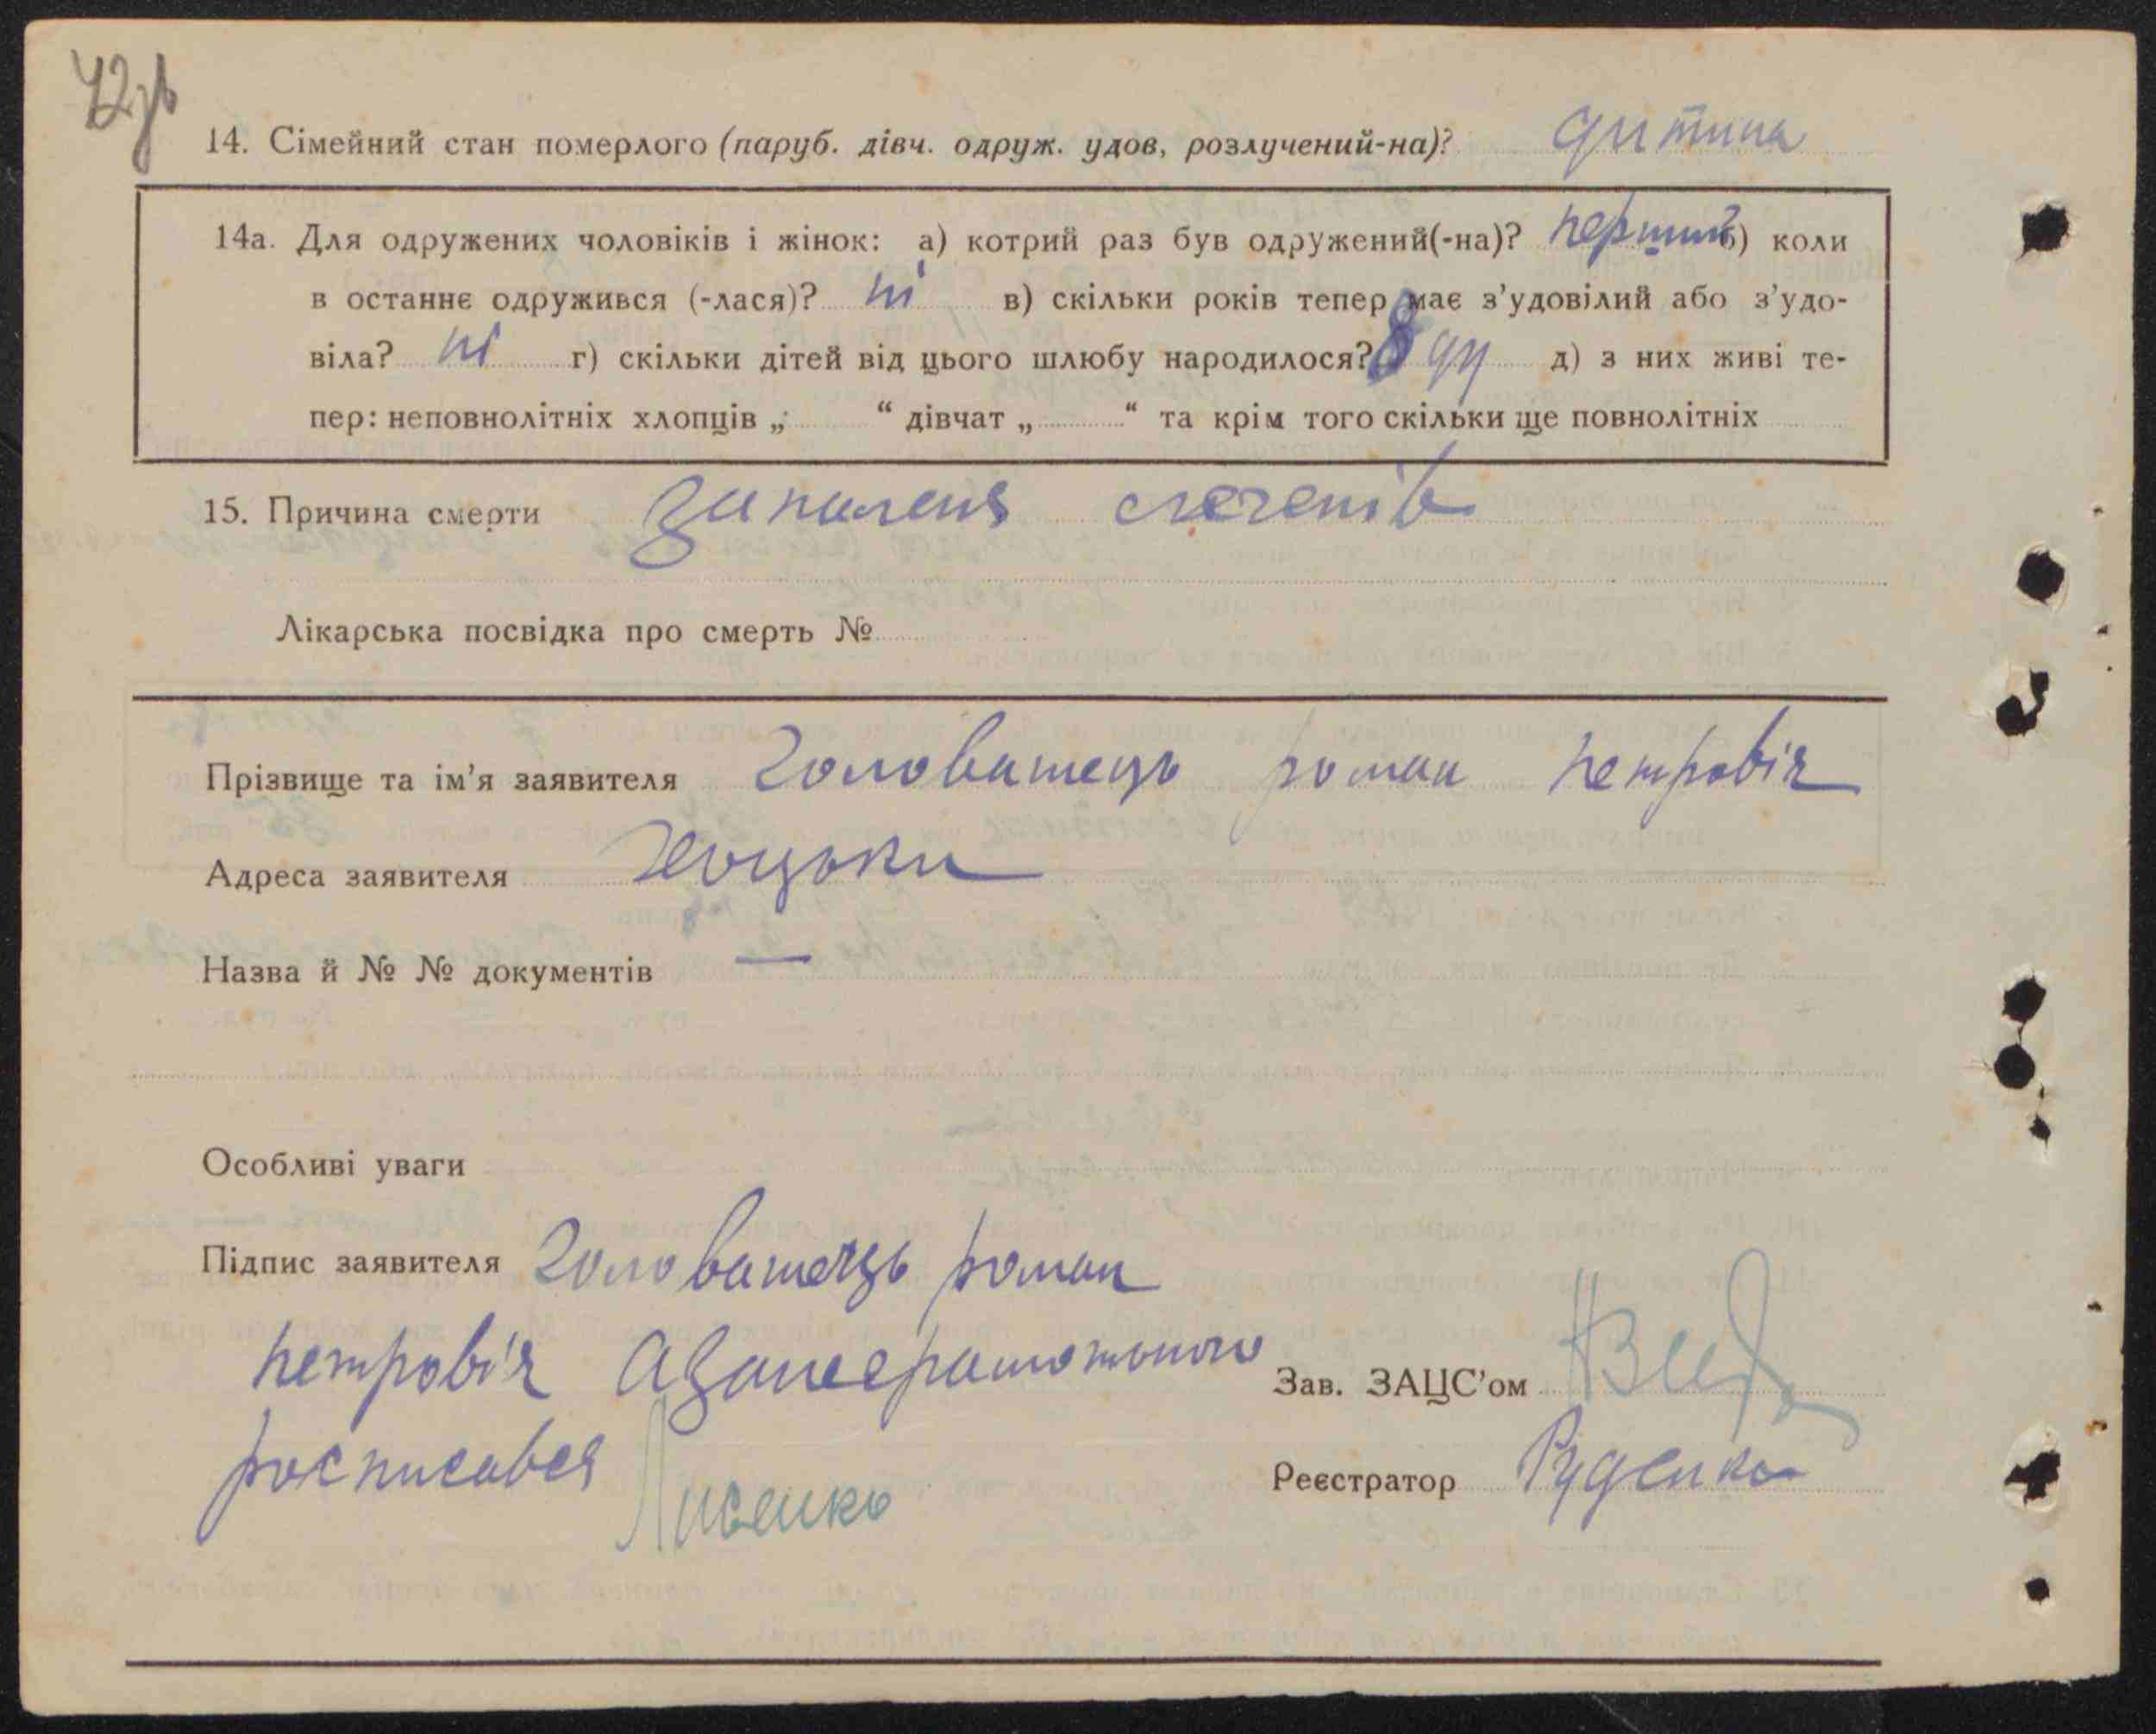 42зв
14. Сімейний стан померлого (паруб. дівч. одруж. удов, розлучений-на)? дитина
14а. Для одружених чоловіків і жінок: а) котрий раз був одружений(-на)? перший б) коли
в останнє одружився (-лася)? ні в) скільки років тепер має з’удовілий або з’удо-
віла? ні г) скільки дітей від цього шлюбу народилося? 8 д) з них живі те-
пер: неповнолітніх хлопців „ “ дівчат „ “ та крім того скільки ще повнолітніх
15. Причина смерти запаленя
Лікарська посвідка про смерть №
Прізвище та ім’я заявителя Головатець роман петровіч
Адреса заявителя Хоцьки
Назва й № № документів —
Особливі уваги
Підпис заявителя Головатець роман
петровіч Азанееграмотного
Зав. ЗАЦС’ом
росписався Лисенко
Реєстратор Руденко